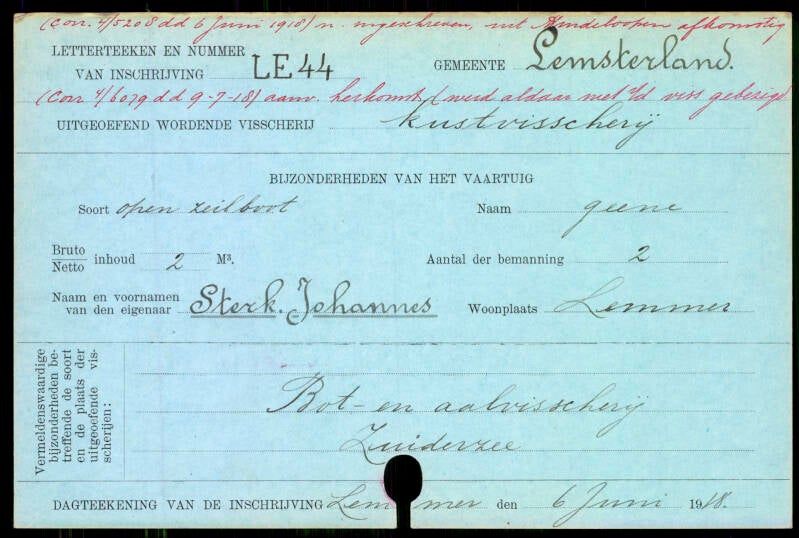 (Corr. 4/5208 dd 6 Juni 1918) n. ingeschreven, uit afkomstig
LETTERTEEKEN EN NUMMER
VAN INSCHRIJVING LE 44 GEMEENTE Lemsterland.
(Corr 4/6079 dd 9-7-18) aanv. herkomst (werd aldaar met v/d viss gebezigd
UITGEOEFEND WORDENDE VISSCHERIJ kustvisscherij
BIJZONDERHEDEN VAN HET VAARTUIG
Soort open zeilboot Naam geene
Bruto
Netto inhoud 2 M³. Aantal der bemanning 2
Naam en voornamen
van den eigenaar Sterk. Johannes Woonplaats Lemmer
Vermeldenswaardige
bijzonderheden be-
treffende de soort
en de plaats der
uitgeoefende vis-
scherijen:
Bot- en aalvisscherij
Zuiderzee
DAGTEEKENING VAN DE INSCHRIJVING Lemmer den 6 Juni 1918.